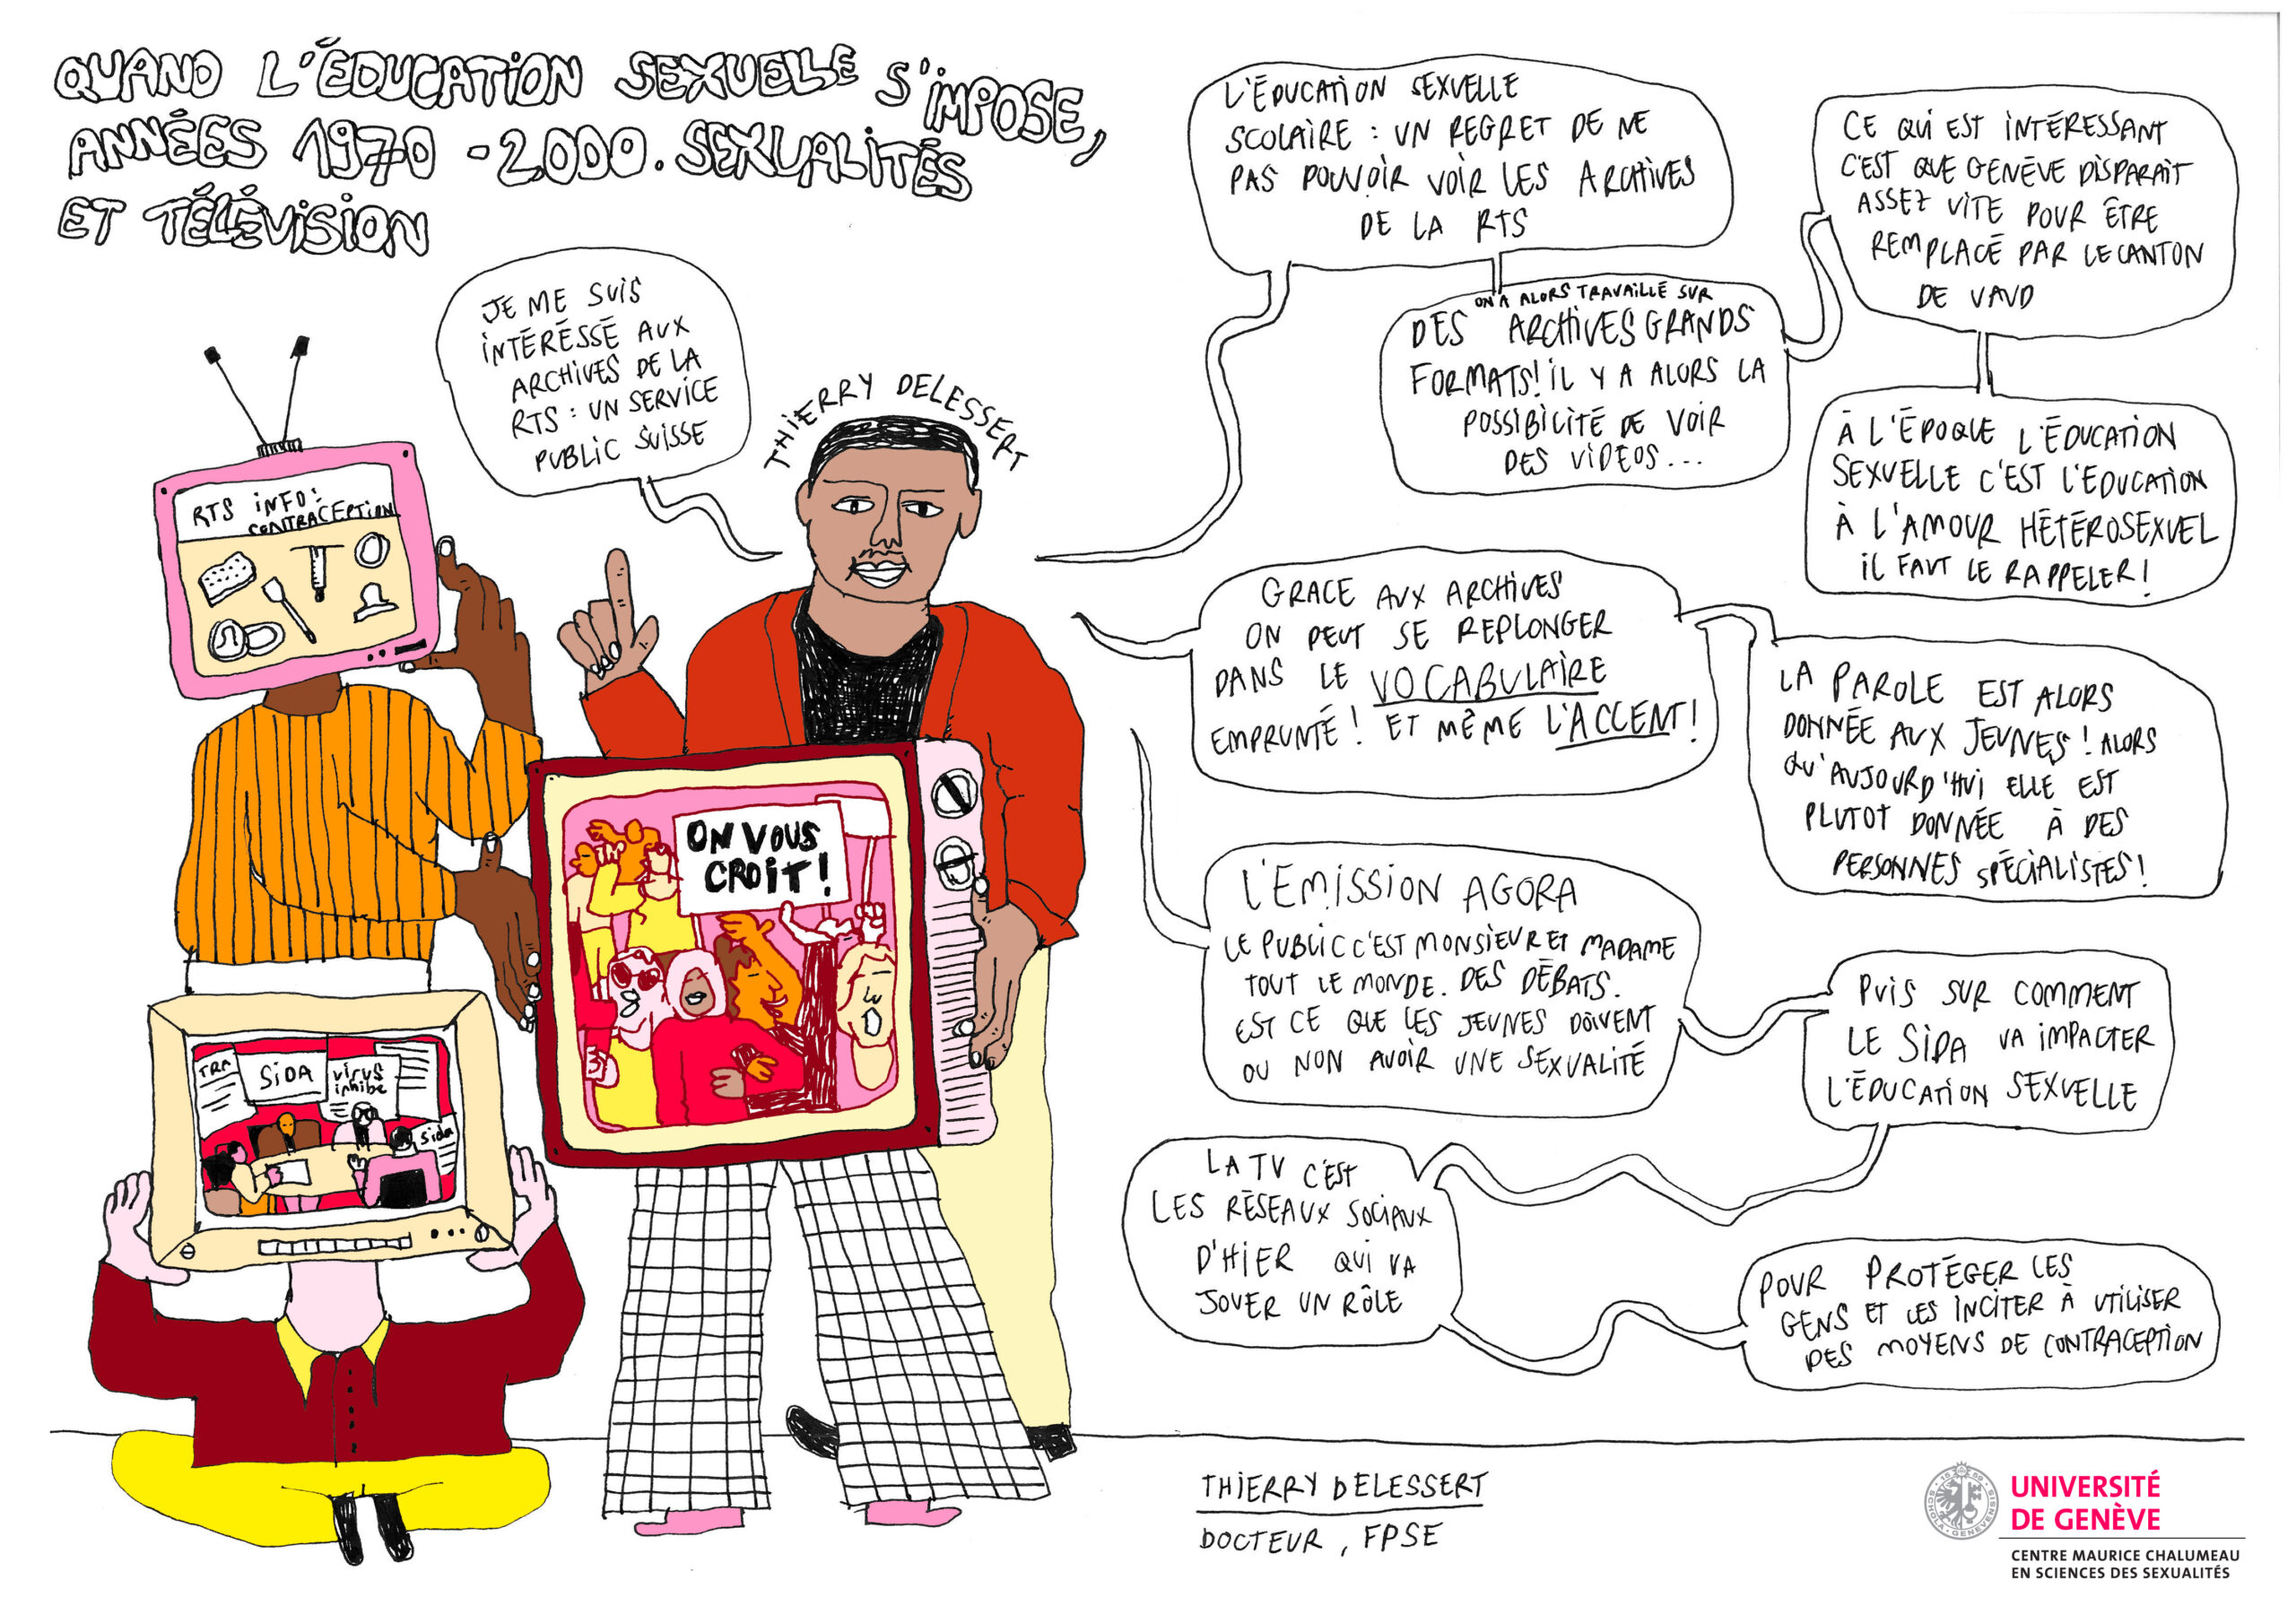 QUAND L'ÉDUCATION SEXUELLE S'IMPOSE,
ANNÉES 1970 - 2000. SEXUALITÉS
ET TÉLÉVISION
JE ME SUIS
INTÉRÉSSÉ AUX
ARCHIVES DE LA
RTS : UN SERVICE
PUBLIC SUISSE
THIERRY DELESSERT
RTS INFO :
CONTRACEPTION
ON VOUS
CROIT !
TRA
SIDA
virus
inhibe
Sida
L'ÉDUCATION SEXUELLE
SCOLAIRE : UN REGRET DE NE
PAS POUVOIR VOIR LES ARCHIVES
DE LA RTS
ON A ALORS TRAVAILLÉ SUR
DES ARCHIVES GRANDS
FORMATS! IL Y A ALORS LA
POSSIBILITÉ DE VOIR
DES VIDEOS...
CE QUI EST INTÉRESSANT
C'EST QUE GENÈVE DISPARAIT
ASSEZ VITE POUR ÊTRE
REMPLACÉ PAR LE CANTON
DE VAUD
À L'ÉPOQUE L'ÉDUCATION
SEXUELLE C'EST L'ÉDUCATION
À L'AMOUR HÉTÉROSEXUEL
IL FAUT LE RAPPELER !
GRACE AUX ARCHIVES
ON PEUT SE REPLONGER
DANS LE VOCABULAIRE
EMPRUNTÉ ! ET MÊME L'ACCENT !
LA PAROLE EST ALORS
DONNÉE AUX JEUNES ! ALORS
QU'AUJOURD'HUI ELLE EST
PLUTOT DONNÉE À DES
PERSONNES SPÉCIALISTES !
L'EMISSION AGORA
LE PUBLIC C'EST MONSIEUR ET MADAME
TOUT LE MONDE. DES DÉBATS.
EST CE QUE LES JEUNES DOIVENT
OU NON AVOIR UNE SEXUALITÉ
PUIS SUR COMMENT
LE SIDA VA IMPACTER
L'ÉDUCATION SEXUELLE
LA TV C'EST
LES RÉSEAUX SOCIAUX
D'HIER QUI VA
JOUER UN RÔLE
POUR PROTÉGER LES
GENS ET LES INCITER À UTILISER
DES MOYENS DE CONTRACEPTION
THIERRY DELESSERT
DOCTEUR, FPSE
SCHOLA GENEVENSIS
1559
UNIVERSITÉ
DE GENÈVE
CENTRE MAURICE CHALUMEAU
EN SCIENCES DES SEXUALITÉS